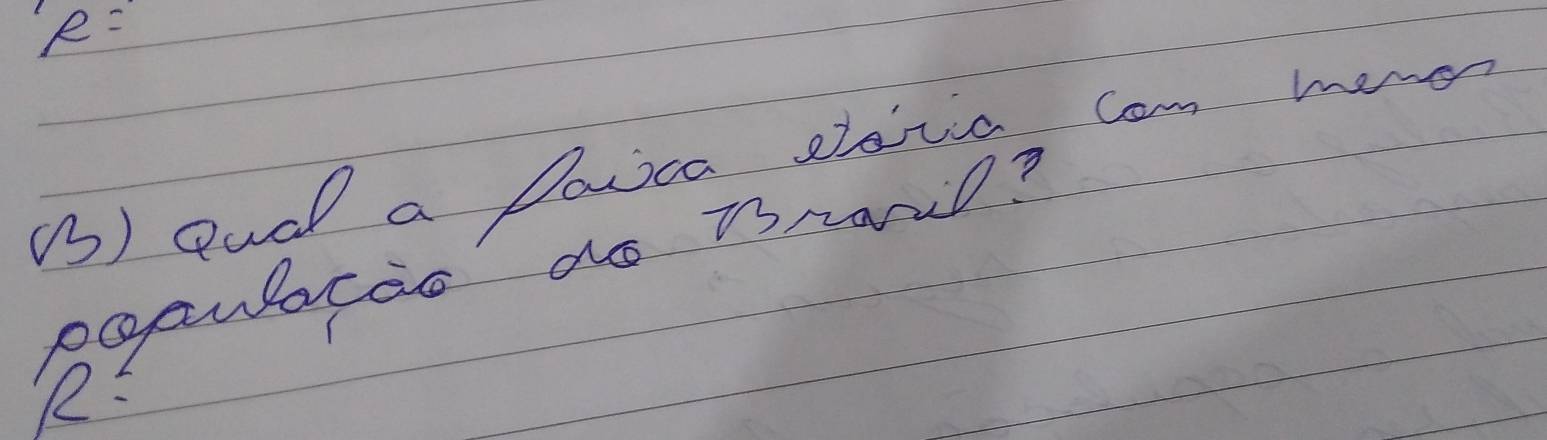 R=
B) Qual a faixa etária com menor
população do Brasil?
R=